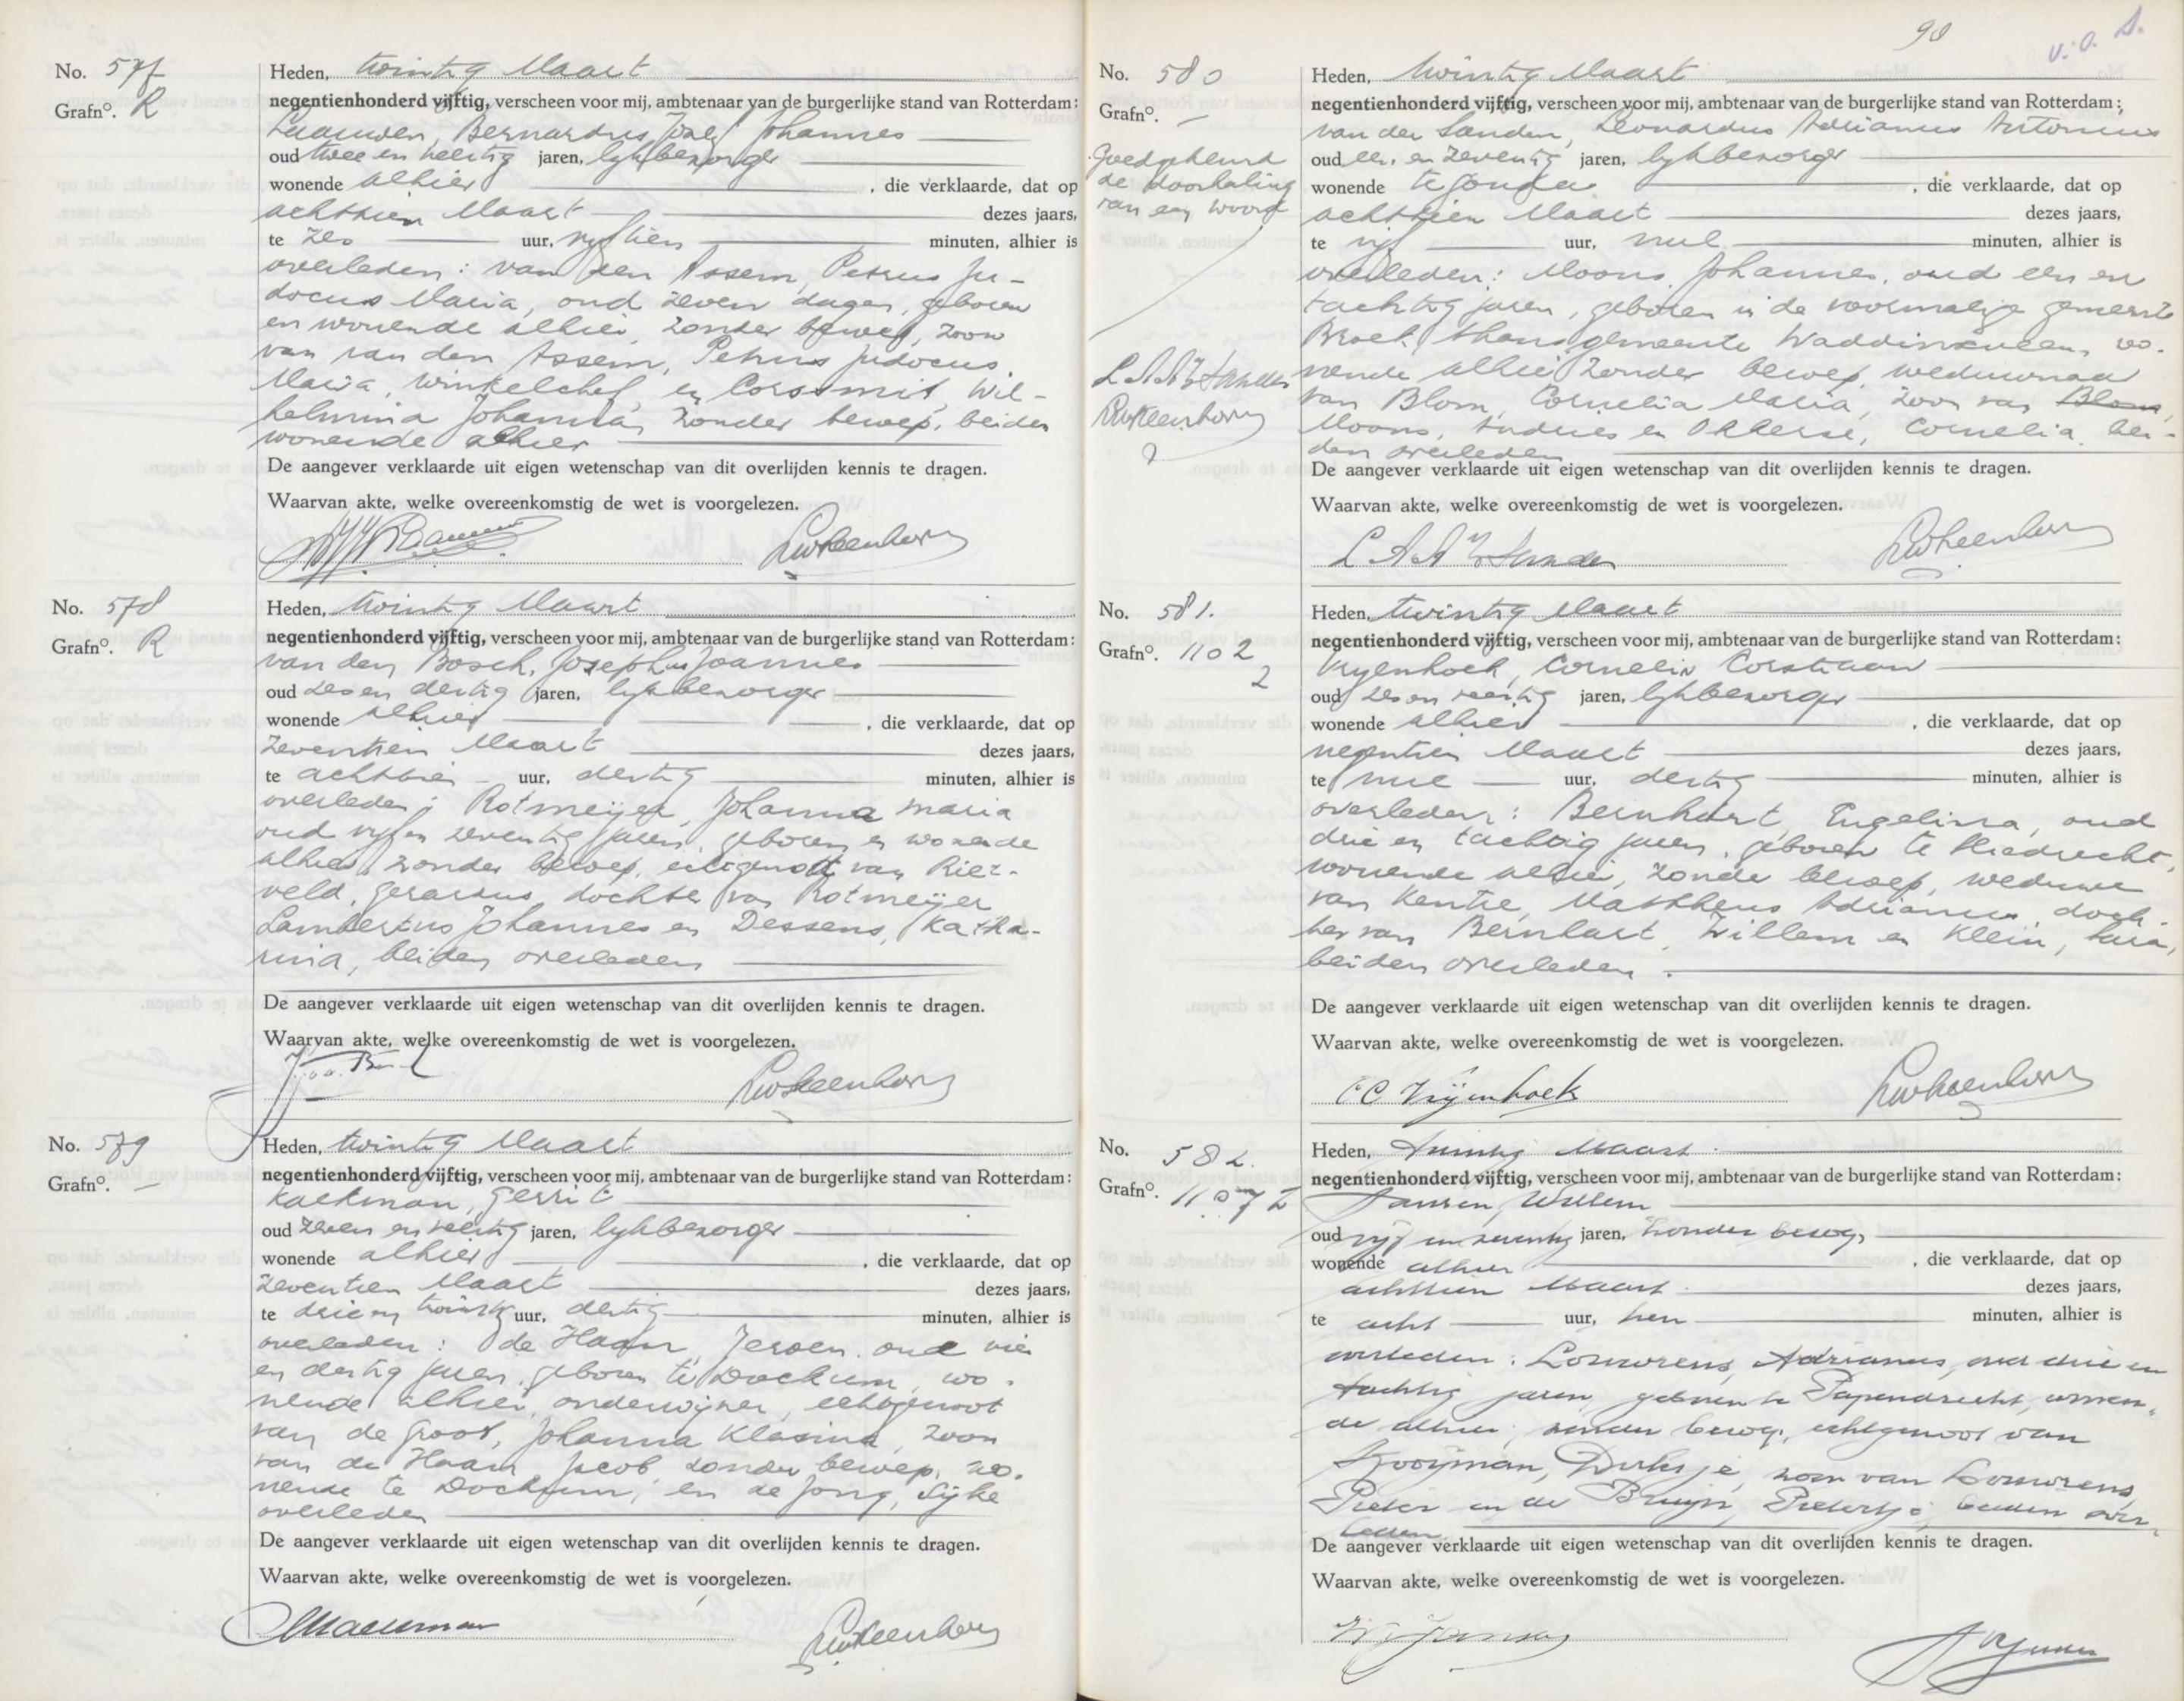 No. 577
Grafno. R
Heden, twintig Maart
negentienhonderd vijftig, verscheen voor mij, ambtenaar van de burgerlijke stand van Rotterdam:
Bernardus Jozef Johannes
oud twee en veertig jaren, lijkbezorger
wonende alhier, die verklaarde, dat op
achttien Maart dezes jaars,
te zes uur, vijftien minuten, alhier is
overleden: van den Assem, Petrus Ju-
docus Maria, oud zeven dagen, geboren
en wonende alhier, zonder beroep, zoon
van van den Assem, Petrus Judocus
Maria, winkelchef, en Corssmit, Wil-
helmina Johanna, zonder beroep, beiden
wonende alhier
De aangever verklaarde uit eigen wetenschap van dit overlijden kennis te dragen.
Waarvan akte, welke overeenkomstig de wet is voorgelezen.
No. 578
Grafno. R
Heden, twintig Maart
negentienhonderd vijftig, verscheen voor mij, ambtenaar van de burgerlijke stand van Rotterdam:
van den Bosch, Josephus Joannes
oud zes en dertig jaren, lijkbezorger
wonende alhier, die verklaarde, dat op
zeventien Maart dezes jaars,
te achttien uur, dertig minuten, alhier is
overleden: Rotmeijer, Johanna Maria
oud vijf en zeventig jaren, geboren en wonende
alhier, zonder beroep, echtgenoot van Riet-
veld, Gerardus, dochter van Rotmeijer
Lambertus Johannes en Dessens, Katha-
rina, beiden overleden
De aangever verklaarde uit eigen wetenschap van dit overlijden kennis te dragen.
Waarvan akte, welke overeenkomstig de wet is voorgelezen.
No. 579
Grafno. —
Heden, twintig Maart
negentienhonderd vijftig, verscheen voor mij, ambtenaar van de burgerlijke stand van Rotterdam:
Gerrit
oud zeven en veertig jaren, lijkbezorger
wonende alhier, die verklaarde, dat op
zeventien Maart dezes jaars,
te drie en twintig uur, dertig minuten, alhier is
overleden: de Haan, Jeroen, oud vier
en dertig jaren, geboren te Dockum, wo-
nende alhier, onderwijzer, echtgenoot
van de Groot, Johanna Klasina, zoon
van de Haan Jacob, zonder beroep, wo-
nende te Dockum, en de Jong, Sijke
overleden
De aangever verklaarde uit eigen wetenschap van dit overlijden kennis te dragen.
Waarvan akte, welke overeenkomstig de wet is voorgelezen.
90
v.o.
No. 580
Grafno. —
Goedgekeurd
de doorhaling
van een woord
L A A v d Sanden
Heden, twintig Maart
negentienhonderd vijftig, verscheen voor mij, ambtenaar van de burgerlijke stand van Rotterdam:
van der Sanden, Leonardus Adrianus Antonius
oud een en zeventig jaren, lijkbezorger
wonende te Gouda, die verklaarde, dat op
achttien Maart dezes jaars,
te vijf uur, nul minuten, alhier is
overleden: Moons, Johannes, oud een en
tachtig jaren, geboren in de voormalige gemeente
Broek, thans gemeente Waddinxveen, wo-
nende alhier, zonder beroep, weduwnaar
van Blom, Cornelia Maria, zoon van Blom,
Moons, Andries en Okkerse, Cornelia, bei-
den overleden
De aangever verklaarde uit eigen wetenschap van dit overlijden kennis te dragen.
Waarvan akte, welke overeenkomstig de wet is voorgelezen.
L A A v d Sanden
No. 581.
Grafno. 1102
2
Heden, twintig Maart
negentienhonderd vijftig, verscheen voor mij, ambtenaar van de burgerlijke stand van Rotterdam:
Vrijenhoek, Cornelis Corstiaan
oud zes en veertig jaren, lijkbezorger
wonende alhier, die verklaarde, dat op
negentien Maart dezes jaars,
te nul uur, dertig minuten, alhier is
overleden: Bernhart, Engelina, oud
drie en tachtig jaren, geboren te Sliedrecht,
wonende alhier, zonder beroep, weduwe
van Kentie, Mattheus Adrianus, doch-
ter van Bernhart, Willem en Klein,
beiden overleden.
De aangever verklaarde uit eigen wetenschap van dit overlijden kennis te dragen.
Waarvan akte, welke overeenkomstig de wet is voorgelezen.
CC Vrijenhoek
No. 582.
Grafno. 1107 2
Heden, twintig Maart
negentienhonderd vijftig, verscheen voor mij, ambtenaar van de burgerlijke stand van Rotterdam:
Jansen, Willem
oud vijf en zeventig jaren, zonder beroep,
wonende alhier, die verklaarde, dat op
achttien Maart dezes jaars,
te acht uur, tien minuten, alhier is
overleden: Louwrens, Adrianus, oud drie en
tachtig jaren, geboren te Papendrecht, wonen-
de alhier, zonder beroep, echtgenoot van
Kooijman, Dirksje, zoon van Louwrens,
Pieter en de Bruijn, Pietertje, beiden over-
leden.
De aangever verklaarde uit eigen wetenschap van dit overlijden kennis te dragen.
Waarvan akte, welke overeenkomstig de wet is voorgelezen.
W Jansen